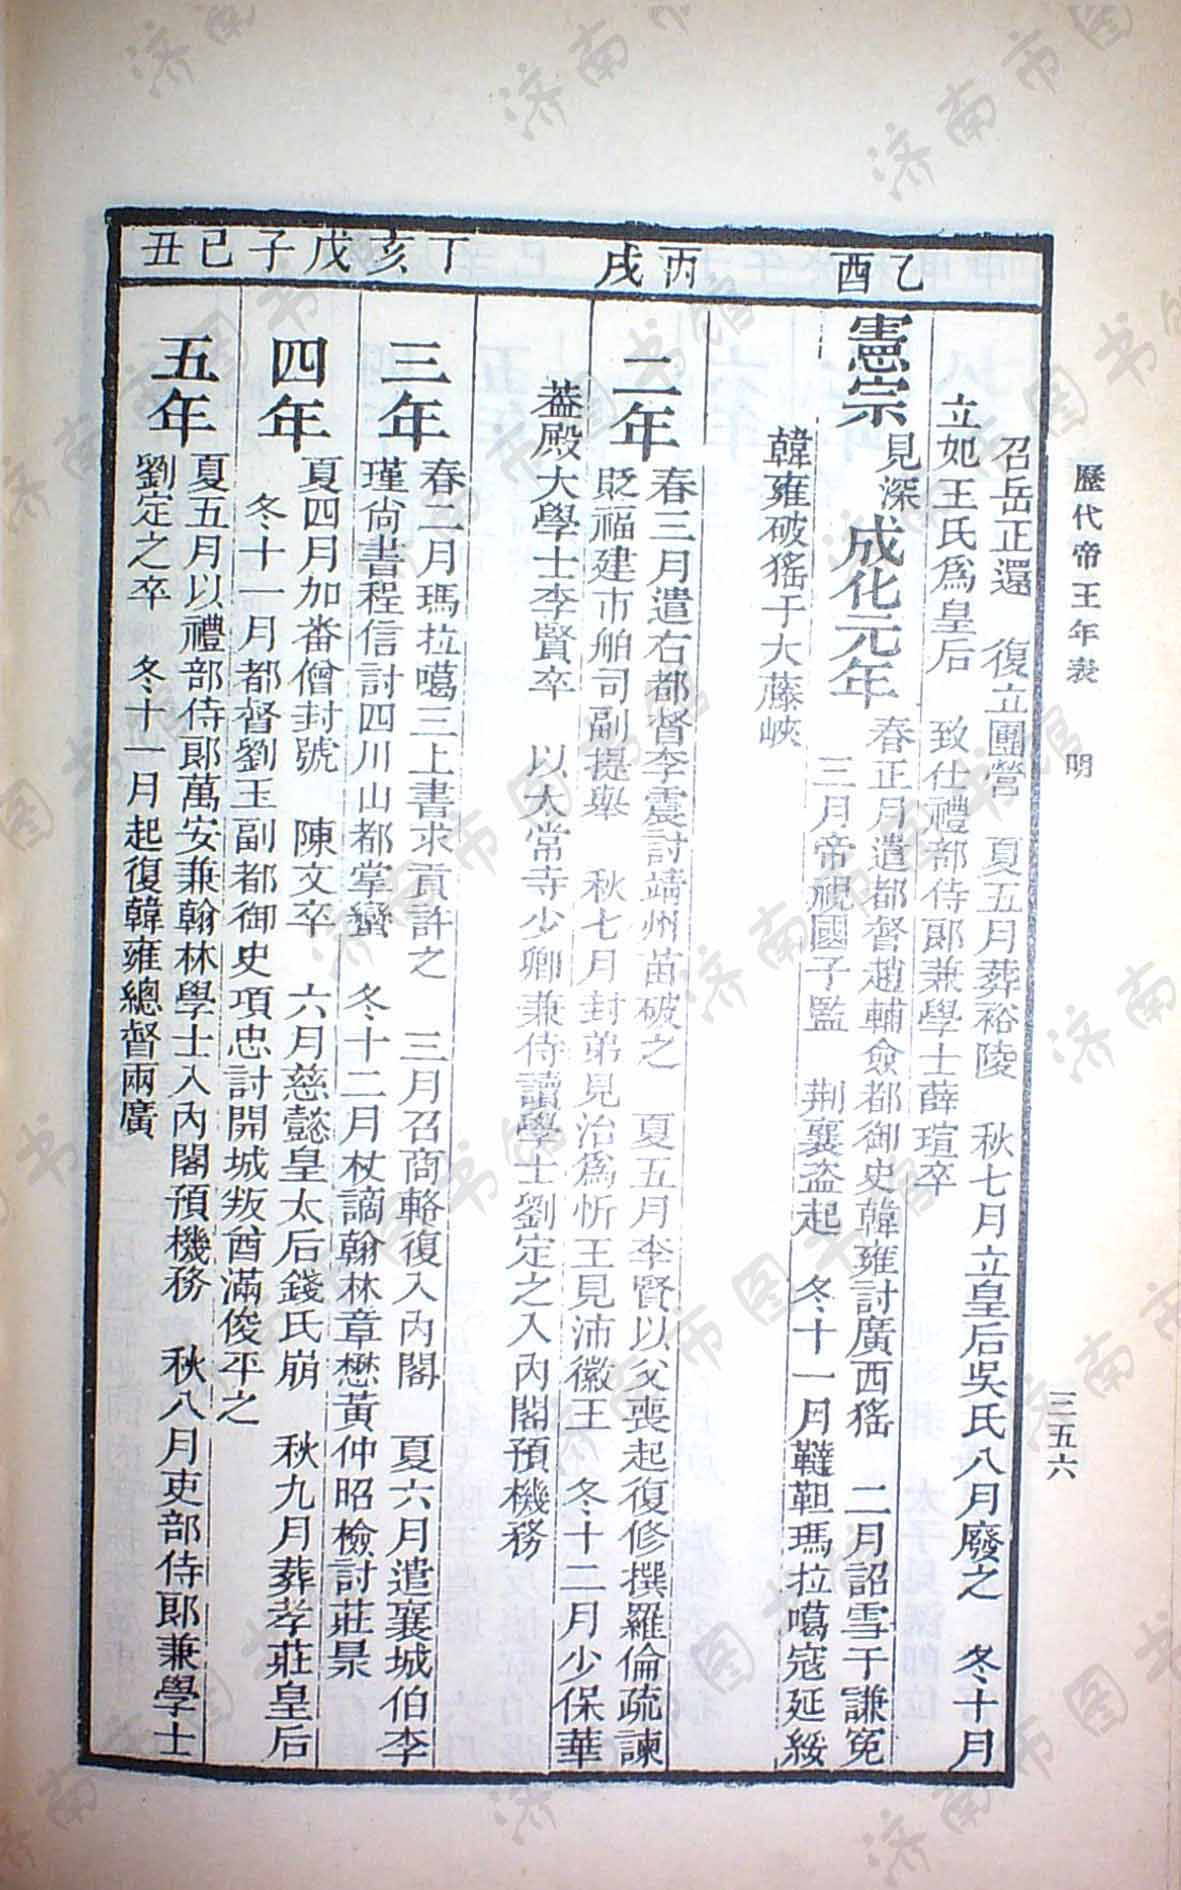 歷代帝王年表　明　三五六
乙酉
丙戌
丁亥戊子己丑
召岳正還　復立團營　夏五月葬裕陵　秋七月立皇后吳氏八月廢之　冬十月
立妃王氏爲皇后　致仕禮部侍郎兼學士薛瑄卒
憲宗見深成化元年　春正月遣都督趙輔僉都御史韓雍討廣西猺　二月詔雪于謙冤
三月帝視國子監　荆襄盗起　冬十一月韃靼瑪拉噶寇延綏
韓雍破猺于大藤峽
二年　春三月遣右都督李震討靖州苗破之　夏五月李賢以父喪起復修撰羅倫疏諫
貶福建市舶司副提舉　秋七月封弟見治爲忻王見沛徽王　冬十二月少保華
葢殿大學士李賢卒　以太常寺少卿兼侍讀學士劉定之入內閣預機務
三年　春二月瑪拉噶三上書求貢許之　三月召商輅復入內閣　夏六月遣襄城伯李
瑾尙書程信討四川山都掌蠻　冬十二月杖謫翰林章懋黃仲昭檢討莊㫤
四年　夏四月加番僧封號　陳文卒　六月慈懿皇太后錢氏崩　秋九月葬孝莊皇后
冬十一月都督劉玉副都御史項忠討開城叛酋滿俊平之
五年　夏五月以禮部侍郎萬安兼翰林學士入內閣預機務　秋八月吏部侍郎兼學士
劉定之卒　冬十一月起復韓雍總督兩廣
济南市图书馆